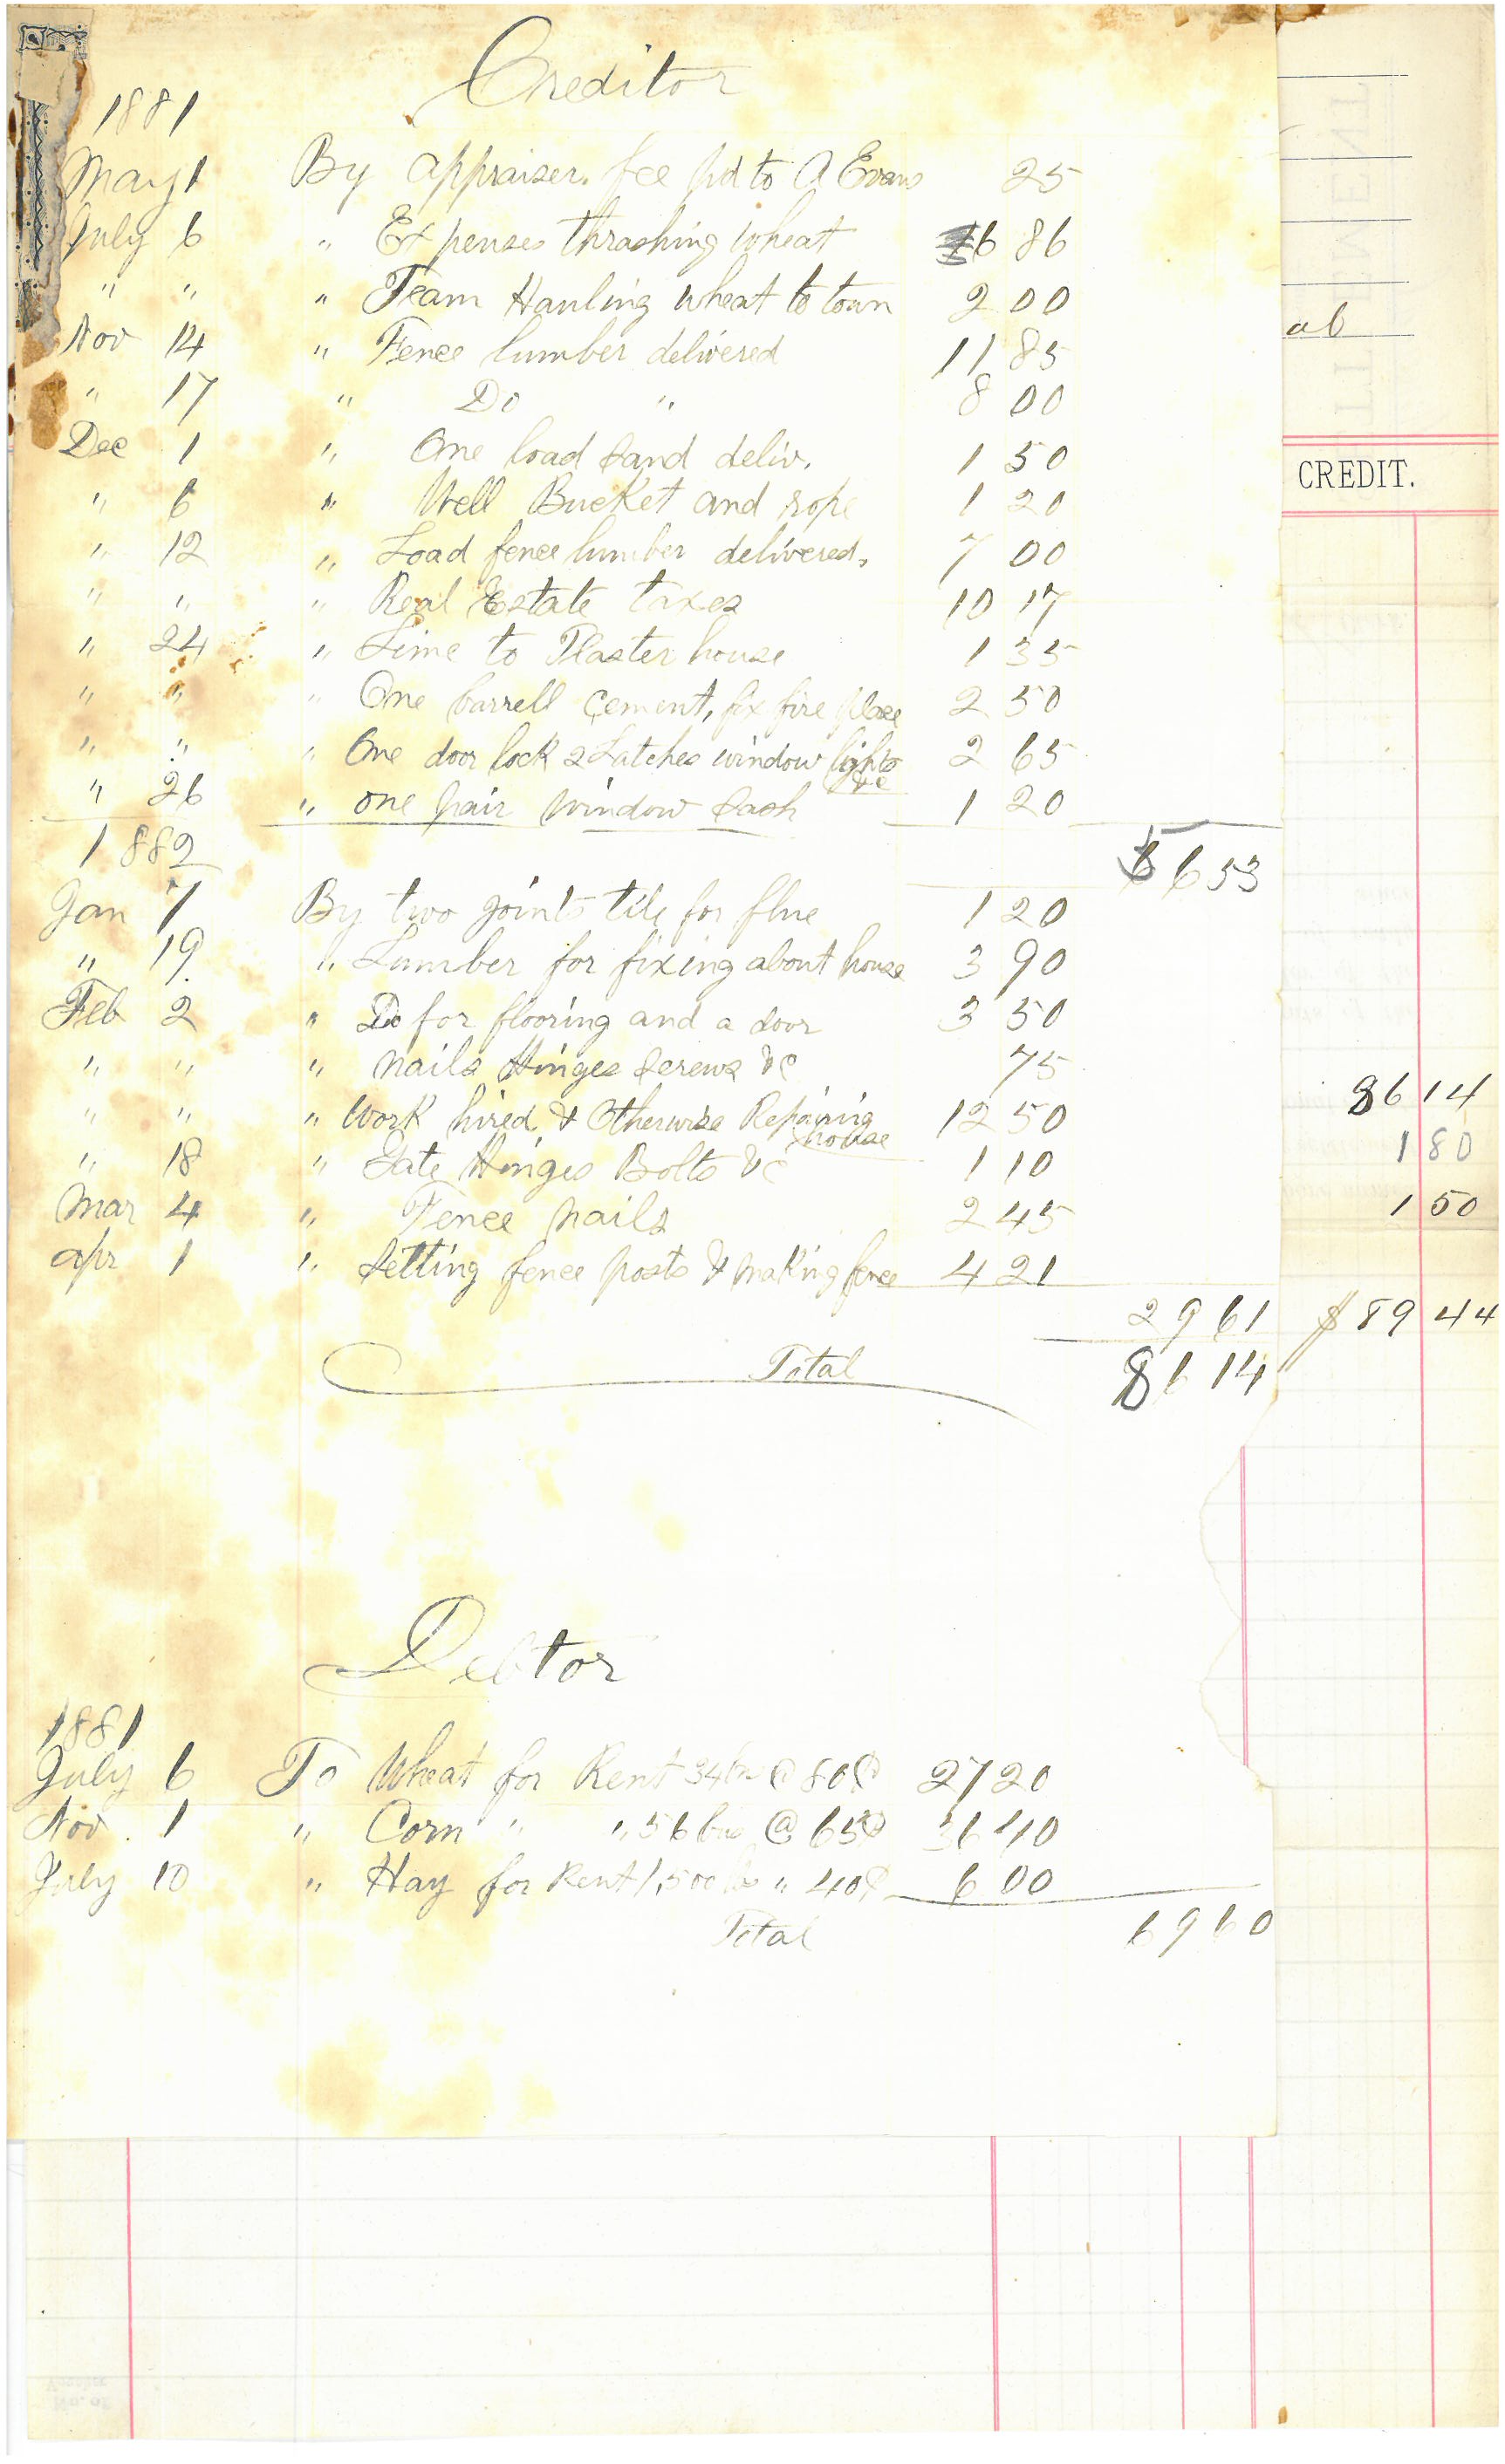 Creditor
1881
May 1 By appraiser. fee pd to A Evans 25
July 6 " Expenses thrashing wheat 6 86
" " " Team Hauling wheat to town 2 00
Nov 14 " Fence lumber delivered 11 85
" 17 " Do " 8 00
Dec 1 " One load sand deliv. 1 50
" 6 " Well Bucket and rope 1 20
" 12 " Load fence lumber delivered, 7 00
" " " Real Estate taxes 10 17
" 24 " Lime to Plaster house 1 35
" " " One barrell Cement, fix fire place 2 50
" " " One door lock 2 Latches window lights &c 2 65
" 26 " one pair window sash 1 20
56 53
1882
Jan 7 By two joints tile for flue 1 20
" 19 " Lumber for fixing about house 3 90
Feb 2 " Do for flooring and a door 3 50
" " " Nails Hinges Screws &c 75
" " " Work hired & Otherwise Repairing house 12 50
" 18 " Gate Hinges Bolts &c 1 10
Mar 4 " Fence Nails 2 45
apr 1 " Setting fence posts & making fence 4 21
29 61
Total 86 14
Debtor
1881
July 6 To Wheat for Rent 34 bu @ 80¢ 27 20
Nov. 1 " Corn " " 56 bu @ 65¢ 36 40
July 10 " Hay for Rent 1,500 lbs " 40¢ 6 00
Total 69 60
al
CREDIT.
86 14
1 80
1 50
$ 89 44